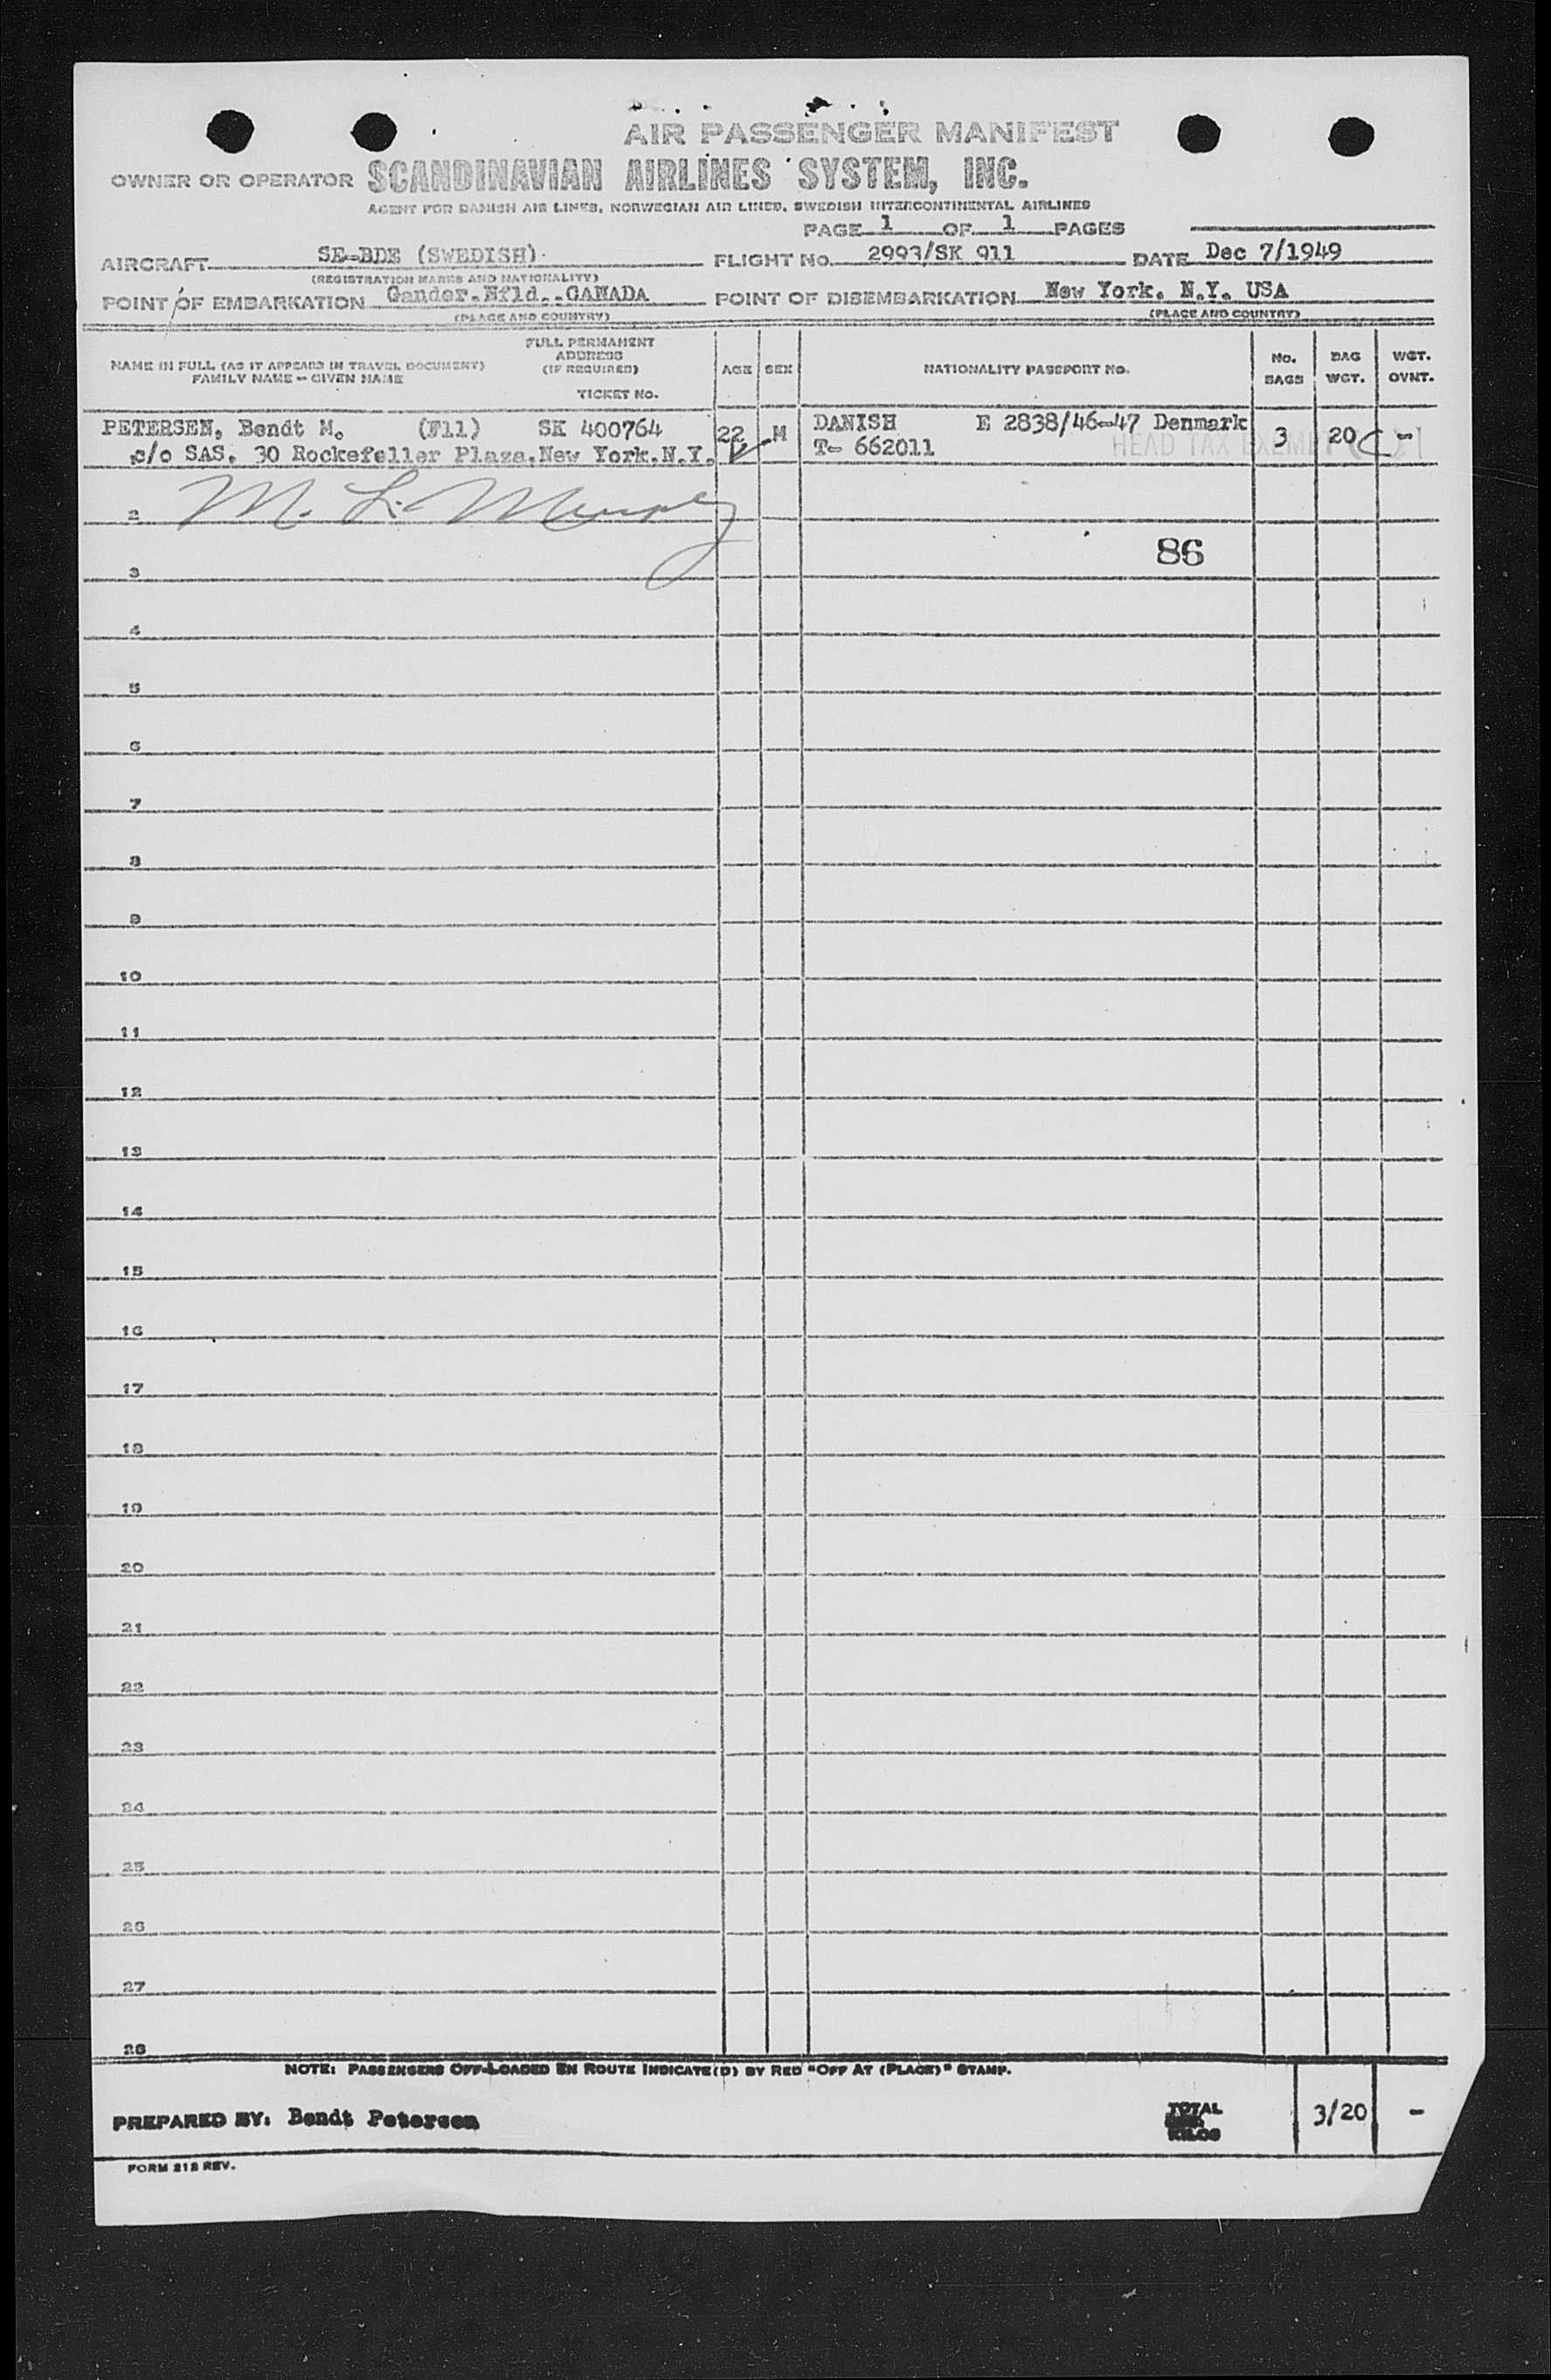 AIR PASSENGER MANIFEST
OWNER OR OPERATOR SCANDINAVIAN AIRLINES SYSTEM, INC.
AGENT FOR DANISH AIR LINES, NORWEGIAN AIR LINES, SWEDISH INTERCONTINENTAL AIRLINES
PAGE 1 OF 1 PAGES
AIRCRAFT SE-BDE (SWEDISH) FLIGHT NO. 2993/SK 911 DATE Dec 7/1949
(REGISTRATION MARKS AND NATIONALITY)
POINT OF EMBARKATION Gander. Nfld.. CANADA POINT OF DISEMBARKATION New York. N.Y. USA
(PLACE AND COUNTRY) (PLACE AND COUNTRY)
NAME IN FULL (AS IT APPEARS IN TRAVEL DOCUMENT)
FAMILY NAME - GIVEN NAME
FULL PERMANENT
ADDRESS
(IF REQUIRED)
TICKET NO.
AGE SEX NATIONALITY PASSPORT NO.
NO.
BAGS
BAG
WGT.
WGT.
OVWT.
PETERSEN, Bendt M. (F11) SK 400764 22 M DANISH E 2838/46-47 Denmark 3 20 -
c/o SAS. 30 Rockefeller Plaza. New York. N.Y. T- 662011 HEAD TAX EXEMPT
2 M. L. Murphy
86
3
4
5
6
7
8
9
10
11
12
13
14
15
16
17
18
19
20
21
22
23
24
25
26
27
28
NOTE: PASSENGERS OFF-LOADED EN ROUTE INDICATE(D) BY RED "OFF AT (PLACE)" STAMP.
PREPARED BY: Bendt Petersen TOTAL 3/20 -
KILOS
FORM 212 REV.